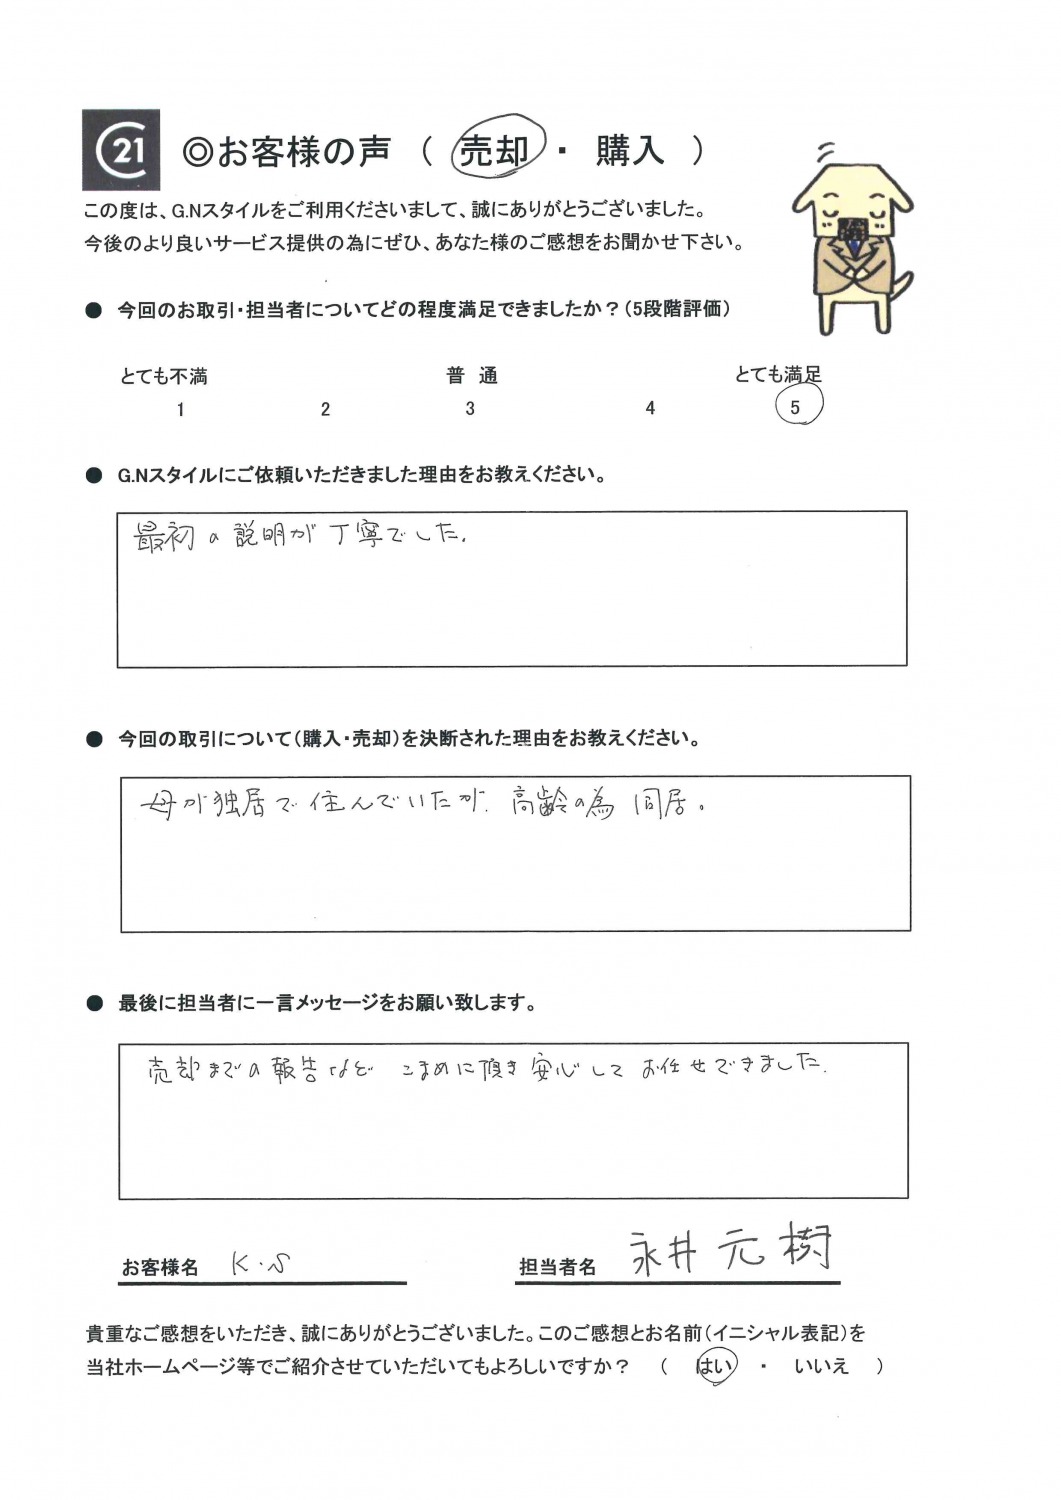 C21 ◎お客様の声 （ 売却 ・ 購入 ）
この度は、G.Nスタイルをご利用くださいまして、誠にありがとうございました。
今後のより良いサービス提供の為にぜひ、あなた様のご感想をお聞かせ下さい。
● 今回のお取引・担当者についてどの程度満足できましたか？（5段階評価）
とても不満 普 通 とても満足
1 2 3 4 5
● G.Nスタイルにご依頼いただきました理由をお教えください。
最初の説明が丁寧でした.
● 今回の取引について（購入・売却）を決断された理由をお教えください。
母が独居で住んでいたが. 高齢の為 同居。
● 最後に担当者に一言メッセージをお願い致します。
売却までの報告など こまめに頂き安心して お任せできました.
お客様名 K.S 担当者名 永井 元樹
貴重なご感想をいただき、誠にありがとうございました。このご感想とお名前（イニシャル表記）を
当社ホームページ等でご紹介させていただいてもよろしいですか？ （ はい ・ いいえ ）